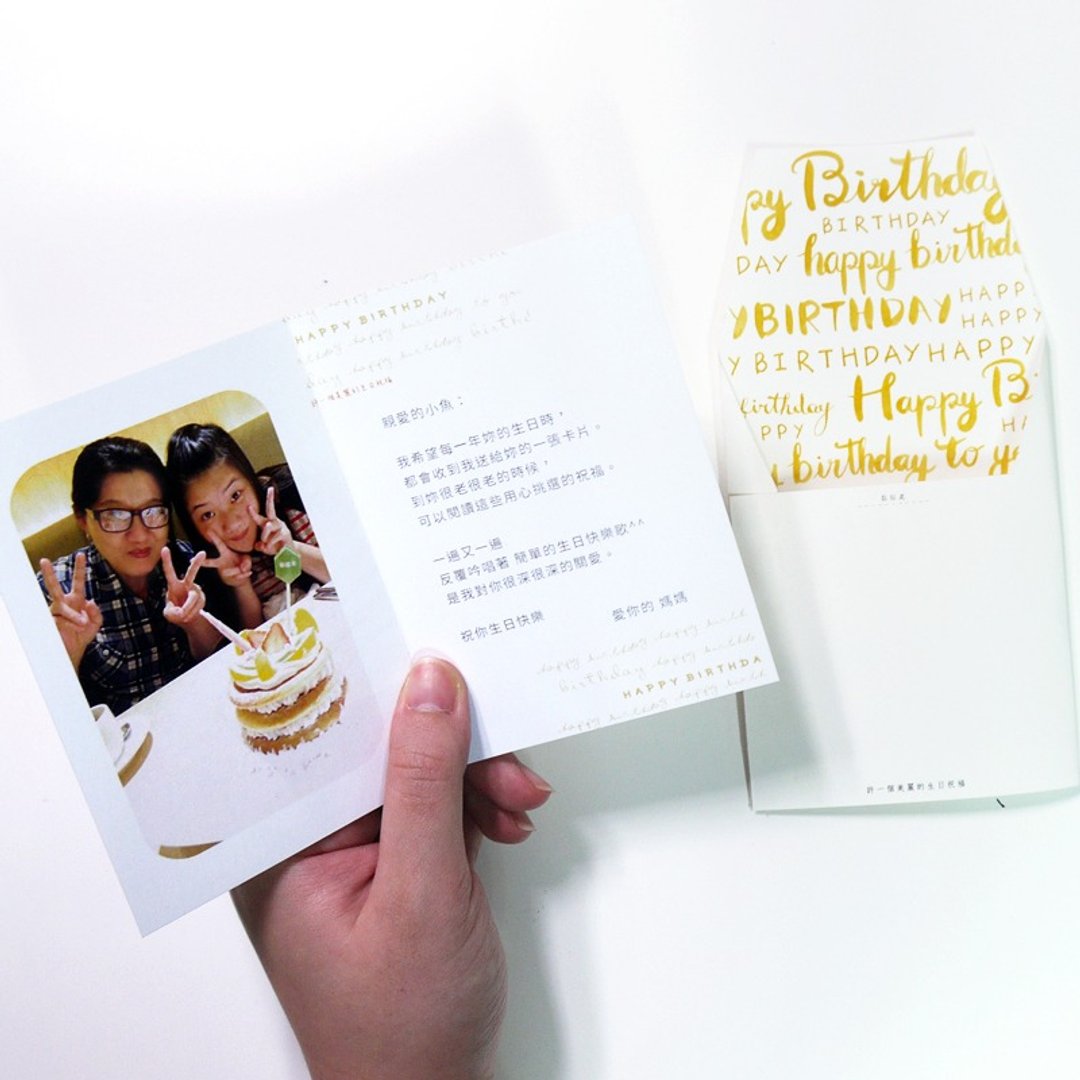 HAPPY BIRTHDAY
許一個美麗的生日祝福
親愛的小魚：
我希望每一年妳的生日時，
都會收到我送給妳的一張卡片。
到妳很老很老的時候，
可以閱讀這些用心挑選的祝福。
一遍又一遍
反覆吟唱著 簡單的生日快樂歌^^
是我對你很深很深的關愛。
祝你生日快樂 愛你的 媽媽
happy birthday happy birthd
birthday happy birthda
HAPPY BIRTHDA
happy birthday happy birthd
py Birthday
BIRTHDAY
DAY happy birthd
Y BIRTHDAY HAPP
HAPPY
Y BIRTHDAY HAPPY
birthday Happy B
PPY
birthday to y
許一個美麗的生日祝福